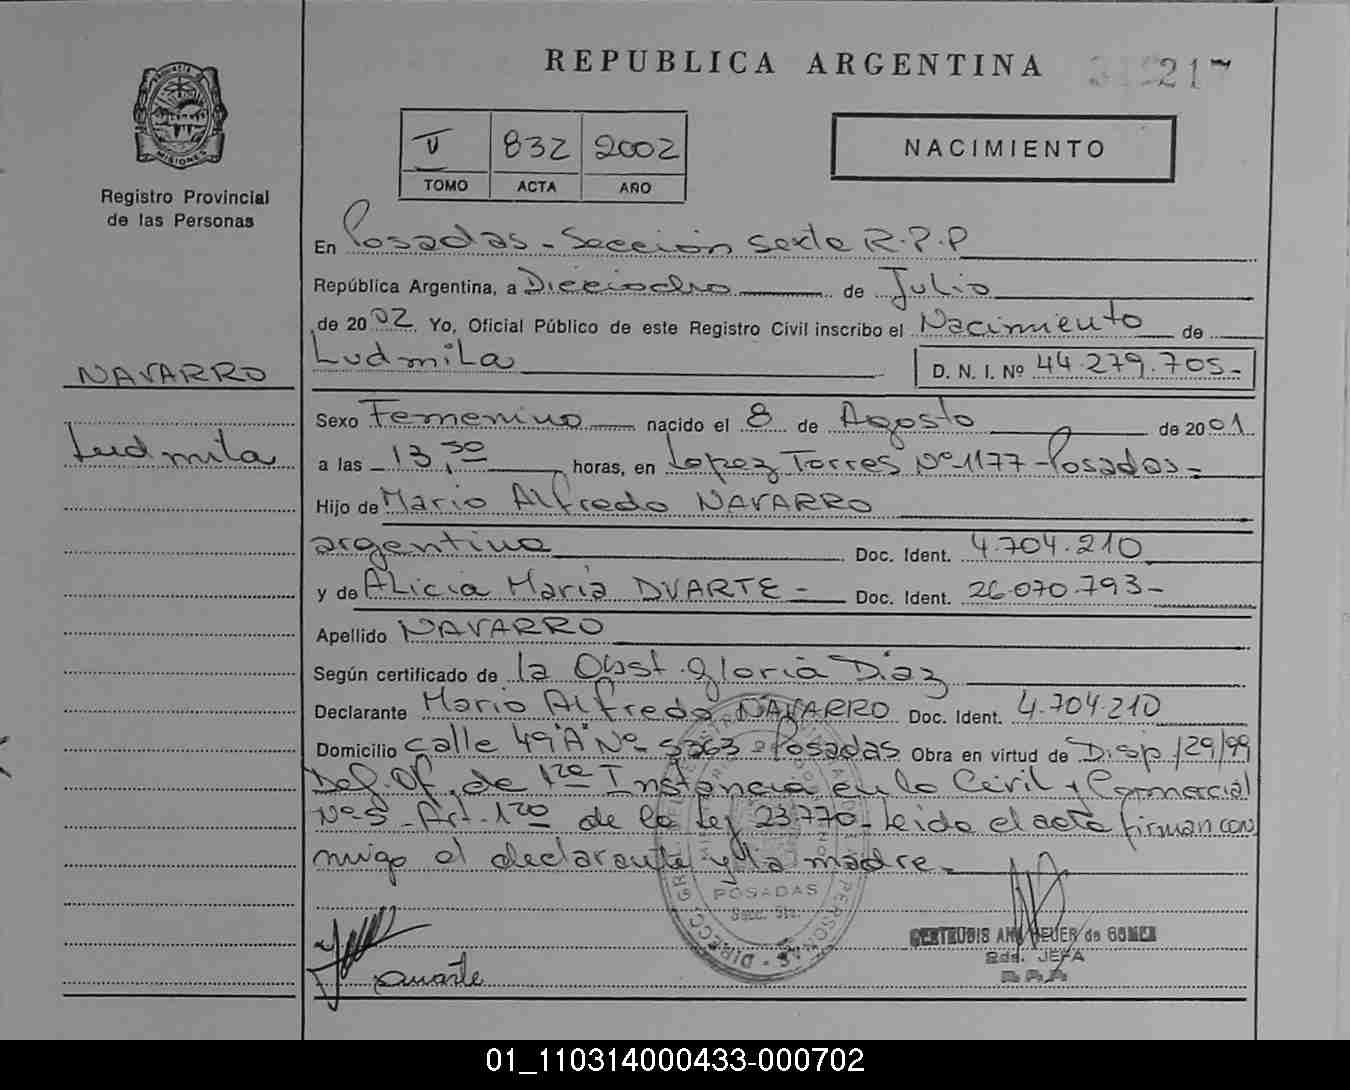 REPUBLICA ARGENTINA
217
PROVINCIA DE
MISIONES
Registro Provincial
de las Personas
V 832 2002
TOMO ACTA AÑO
NACIMIENTO
En Posadas - Sección Sexta R.P.P
República Argentina, a Dieciocho de Julio
de 2002. Yo, Oficial Público de este Registro Civil inscribo el Nacimiento de
Ludmila D. N. I. Nº 44.279.705-
NAVARRO
Ludmila
Sexo Femenino nacido el 8 de Agosto de 2001
a las 13,50 horas, en Lopez Torres Nº 1177 - Posadas -
Hijo de Mario Alfredo NAVARRO
argentino Doc. Ident. 4.704.210
y de Alicia Maria DUARTE - Doc. Ident. 26.070.793-
Apellido NAVARRO
Según certificado de la Obst. Gloria Diaz
Declarante Mario Alfredo NAVARRO Doc. Ident. 4.704.210
Domicilio Calle 49 "A" Nº 5363 - Posadas Obra en virtud de Disp. 129/99
Def. Of. de 1ra Instancia en lo Civil y Comercial
Nº 5 - Art. 1ro de la Ley 23.770 - Leida el acta firman con
migo el declarante y la madre -
POSADAS
Secc. 6ta.
GERTRUDIS de GOMEZ
JEFA
Duarte
01_110314000433-000702